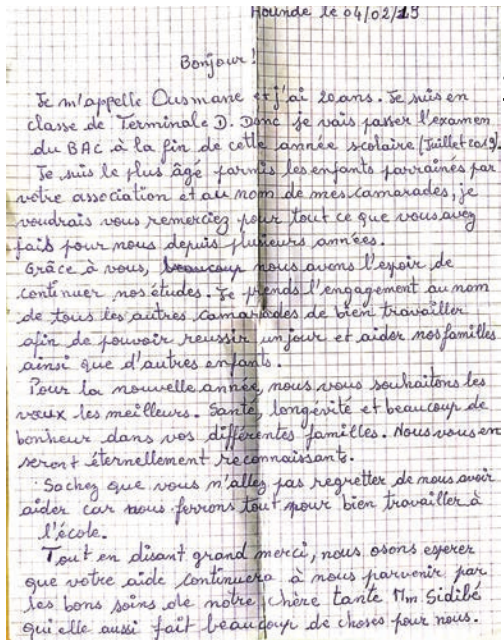 Hounde le 04/02/19
Bonjour !
Je m'appelle Ousmane et j'ai 20 ans. Je suis en
classe de Terminale D. Donc je vais passer l'examen
du BAC à la fin de cette année scolaire (Juillet 2019).
Je suis le plus âgé parmis les enfants parrainés par
votre association et au nom de mes camarades, je
voudrais vous remerciez pour tout ce que vous avez
fais pour nous depuis plusieurs années.
Grâce à vous, beaucoup nous avons l'espoir de
continuer nos études. Je prends l'engagement au nom
de tous les autres camarades de bien travailler
afin de pouvoir reussir un jour et aider nos familles
ainsi que d'autres enfants.
Pour la nouvelle année, nous vous souhaitons les
vœux les meilleurs. Santé, longévité et beaucoup de
bonheur dans vos différentes familles. Nous vous en
seront éternellement reconnaissants.
Sachez que vous n'allez pas regretter de nous avoir
aider car nous ferrons tout pour bien travailler à
l'école.
Tout en disant grand merci, nous osons esperer
que votre aide continuera à nous parvenir par
les bons soins de notre chère tante Mm Sidibé
qui elle aussi fait beaucoup de choses pour nous.